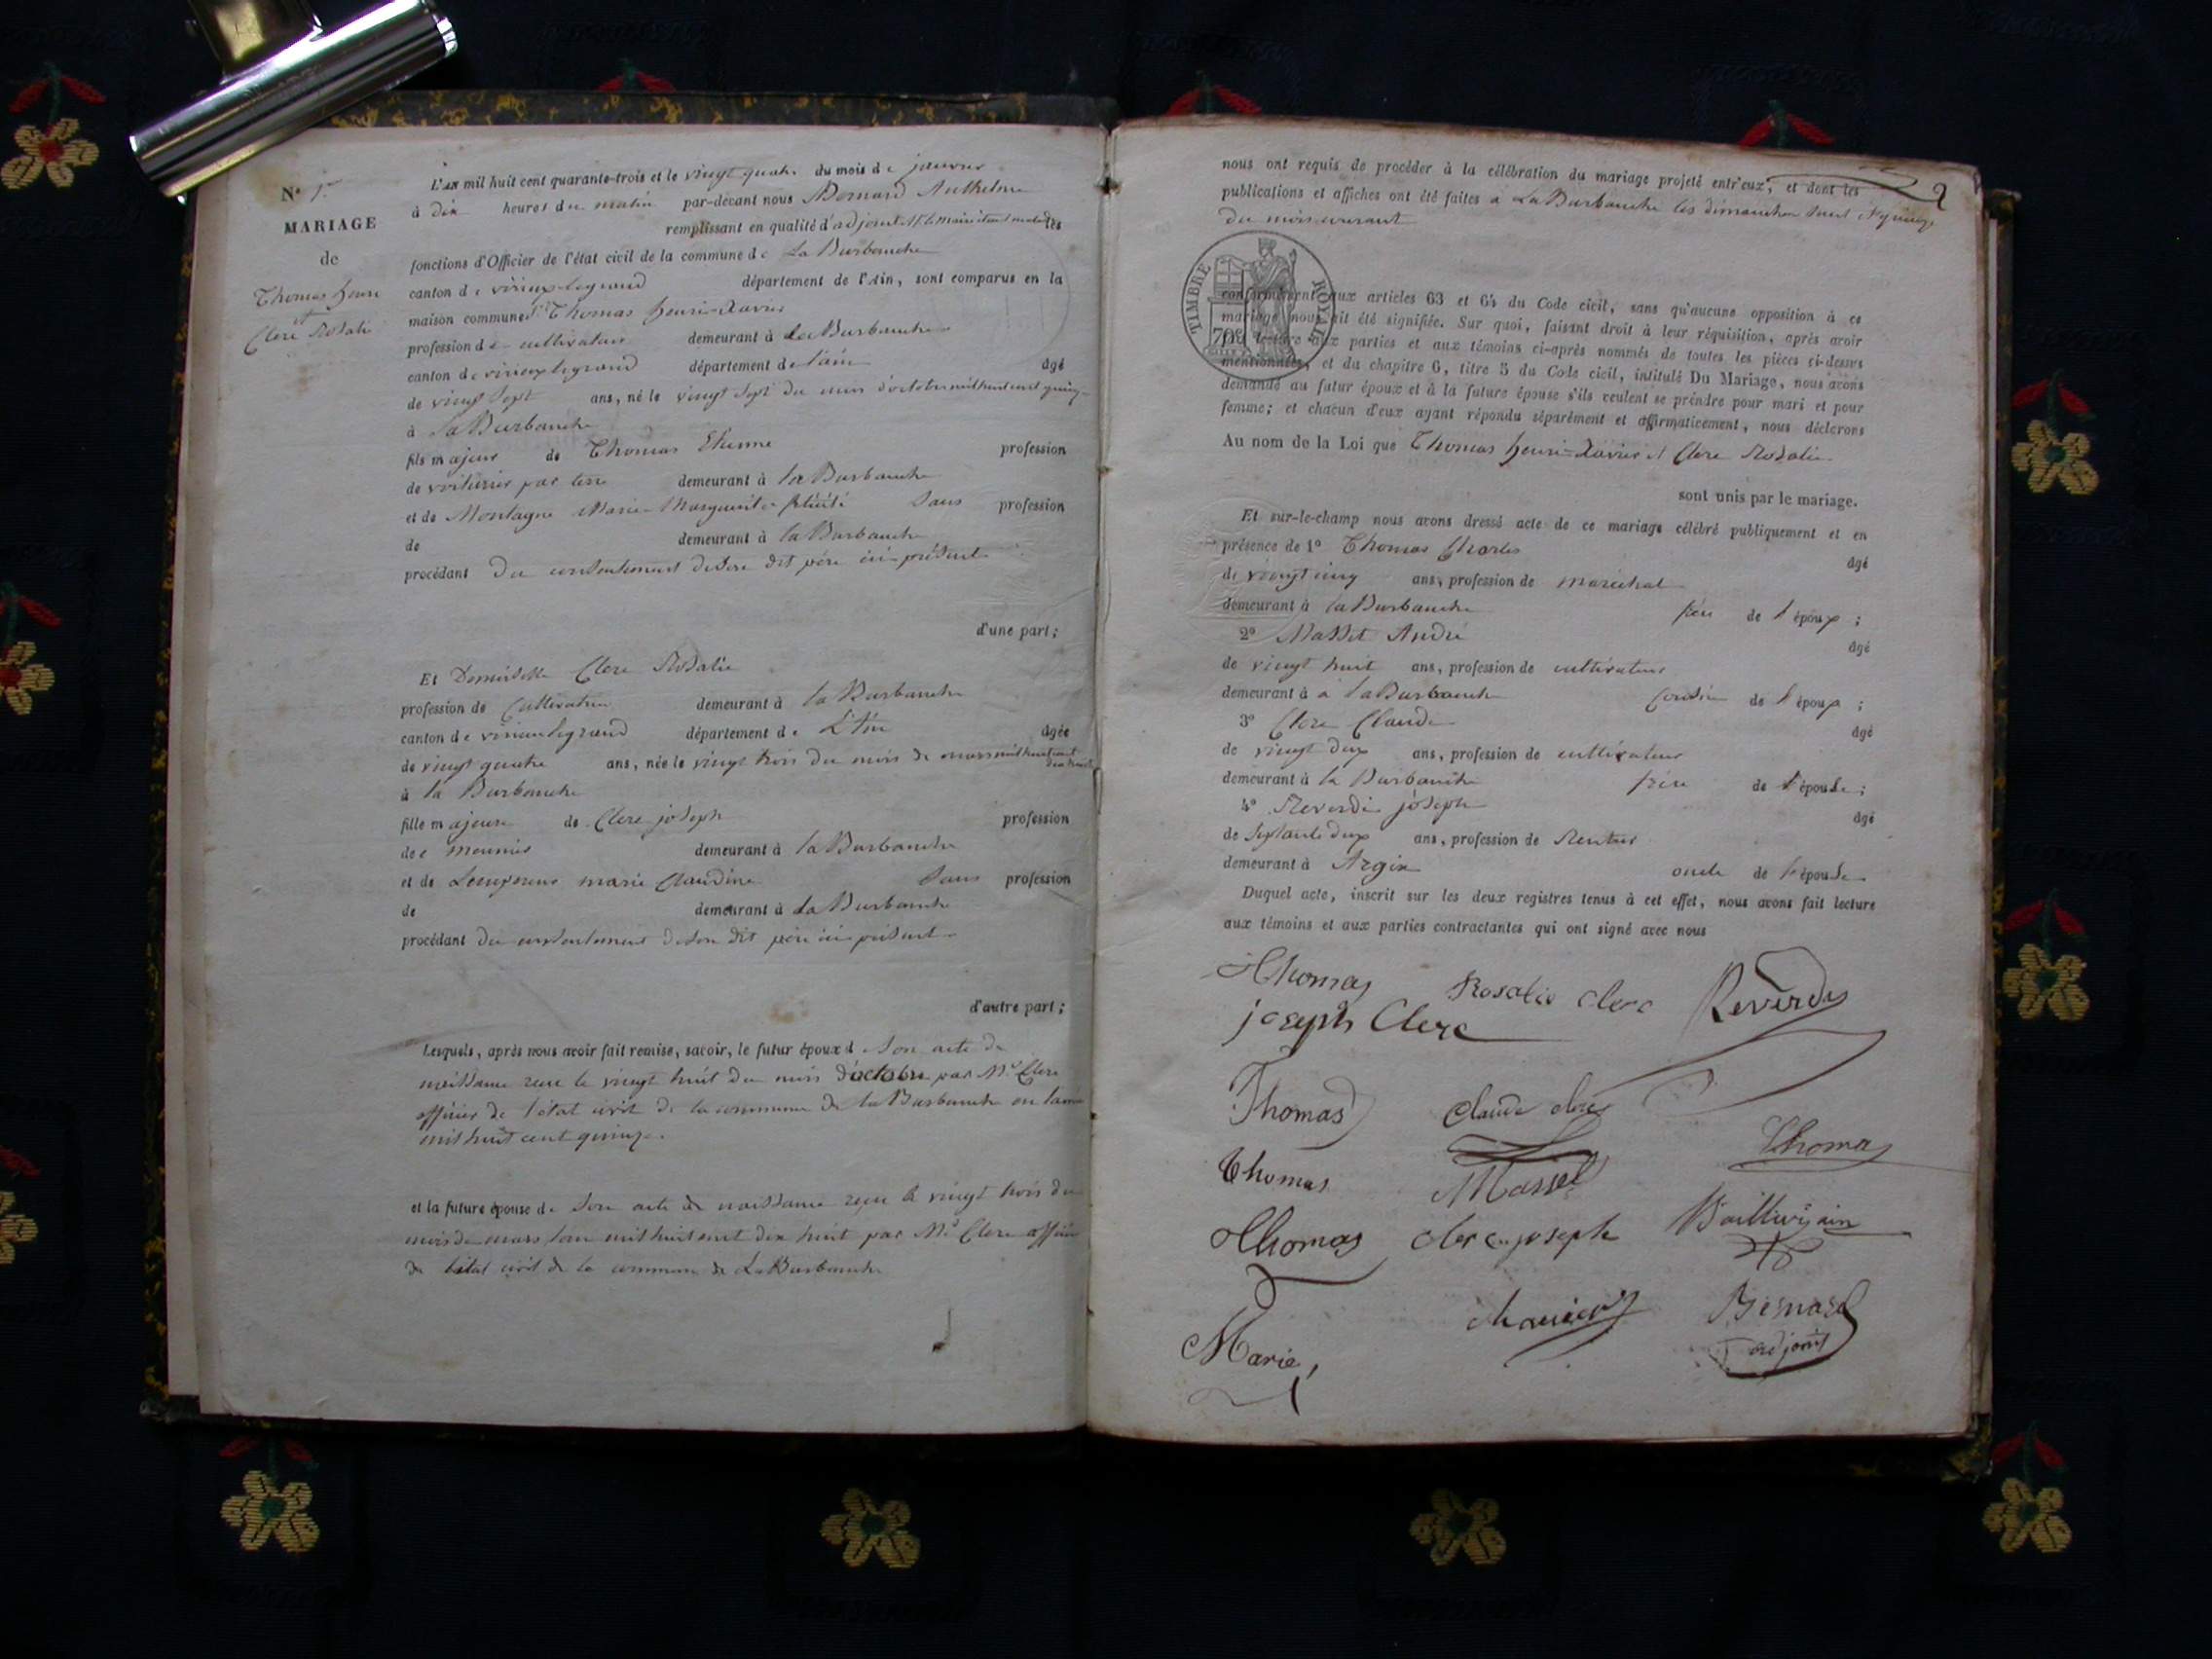 N° 1er
MARIAGE
de
Thomas henri
et
Clerc Rosalie
L'an mil huit cent quarante-trois et le vingt quatre du mois de janvier
à dix heures du matin par-devant nous Bernard Anthelme
remplissant en qualité d'adjoint Mr le Maire étant malade les
fonctions d'Officier de l'état civil de la commune de La Burbanche
canton de virieux legrand département de l'Ain, sont comparus en la
maison commune Sr Thomas henri-Xavier
profession de cultivateur demeurant à La Burbanche
canton de virieux legrand département de l'ain âgé
de vingt sept ans, né le vingt sept du mois d'octobre mil huit cent quinze
à La Burbanche
fils majeur de Thomas Etienne profession
de voiturier par terre demeurant à la Burbanche
et de Montagne Marie-Marguerite félicité Sans profession
de demeurant à la Burbanche
procédant du consentement de son dit père ici présent
d'une part;
Et Demoiselle Clerc Rosalie
profession de Cultivatrice demeurant à la Burbanche
canton de virieu legrand département de L'Ain âgée
de vingt quatre ans, née le vingt trois du mois de mars mil huit cent dix huit
à la Burbanche
fille majeure de Clerc joseph profession
de meunier demeurant à la Burbanche
et de marie Claudine Sans profession
de demeurant à La Burbanche
procédant du consentement de son dit père ici présent
d'autre part;
Lesquels, après nous avoir fait remise, savoir, le futur époux d son acte de
naissance reçu le vingt huit du mois d'octobre par Mr Clerc
officier de l'état civil de la commune de la Burbanche en l'année
mil huit cent quinze.
et la future épouse de Son acte de naissance reçu le vingt trois du
mois de mars l'an mil huit cent dix huit par Mr Clerc officier
de l'état civil de la commune de La Burbanche
2
nous ont requis de procéder à la célébration du mariage projeté entr'eux, et dont les
publications et affiches ont été faites à La Burbanche les dimanches huit et quinze
du mois courant
TIMBRE ROYAL
70c
conformément aux articles 63 et 64 du Code civil, sans qu'aucune opposition à ce
mariage nous ait été signifiée. Sur quoi, faisant droit à leur réquisition, après avoir
fait lecture aux parties et aux témoins ci-après nommés de toutes les pièces ci-dessus
mentionnées, et du chapitre 6, titre 5 du Code civil, intitulé Du Mariage, nous avons
demandé au futur époux et à la future épouse s'ils veulent se prendre pour mari et pour
femme; et chacun d'eux ayant répondu séparément et affirmativement, nous déclarons
Au nom de la Loi que Thomas henri-Xavier et Clerc Rosalie
sont unis par le mariage.
Et sur-le-champ nous avons dressé acte de ce mariage célébré publiquement et en
présence de 1° Thomas Charles âgé
de vingt cinq ans, profession de maréchal
demeurant à la Burbanche frère de l'époux;
2° Masset André âgé
de vingt huit ans, profession de cultivateur
demeurant à à la Burbanche Cousin de l'époux;
3° Clerc Claude âgé
de vingt deux ans, profession de cultivateur
demeurant à la Burbanche frère de l'épouse;
4° Reverdi joseph âgé
de Septante deux ans, profession de Rentier
demeurant à Argis oncle de l'épouse
Duquel acte, inscrit sur les deux registres tenus à cet effet, nous avons fait lecture
aux témoins et aux parties contractantes qui ont signé avec nous
Thomas Rosalie clerc Reverdy
joseph Clerc
Thomas claude clerc
Thomas
Thomas Massel
Thomas clerc joseph
Marie Bernard
adjoint